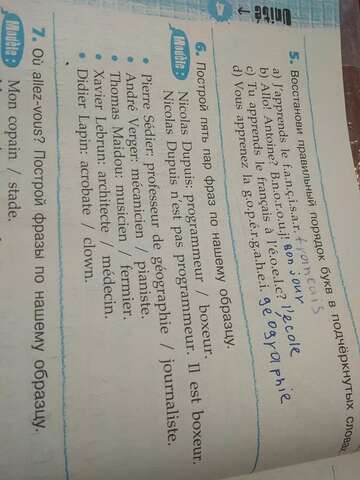 5. Восстанови правильный порядок букв в подчёркнутых словах
a) J'apprends le f.a.n.ç.i.s.a.r. français
b) Allo! Antoine? B.n.o.r.o.u.j! Bonjour
c) Tu apprends le français à l'é.o.e.l.c.? l'école
d) Vous apprenez la g.o.p.é.r.g.a.h.e.i. géographie
6. Построй пять пар фраз по нашему образцу.
Modèle:
Nicolas Dupuis: programmeur / boxeur.
Nicolas Dupuis n'est pas programmeur. Il est boxeur.
• Pierre Sédier: professeur de géographie / journaliste.
• André Verger: mécanicien / pianiste.
• Thomas Maidou: musicien / fermier.
• Xavier Lebrun: architecte / médecin.
• Didier Lapin: acrobate / clown.
7. Où allez-vous? Построй фразы по нашему образцу.
Modèle:
Mon copain / stade.